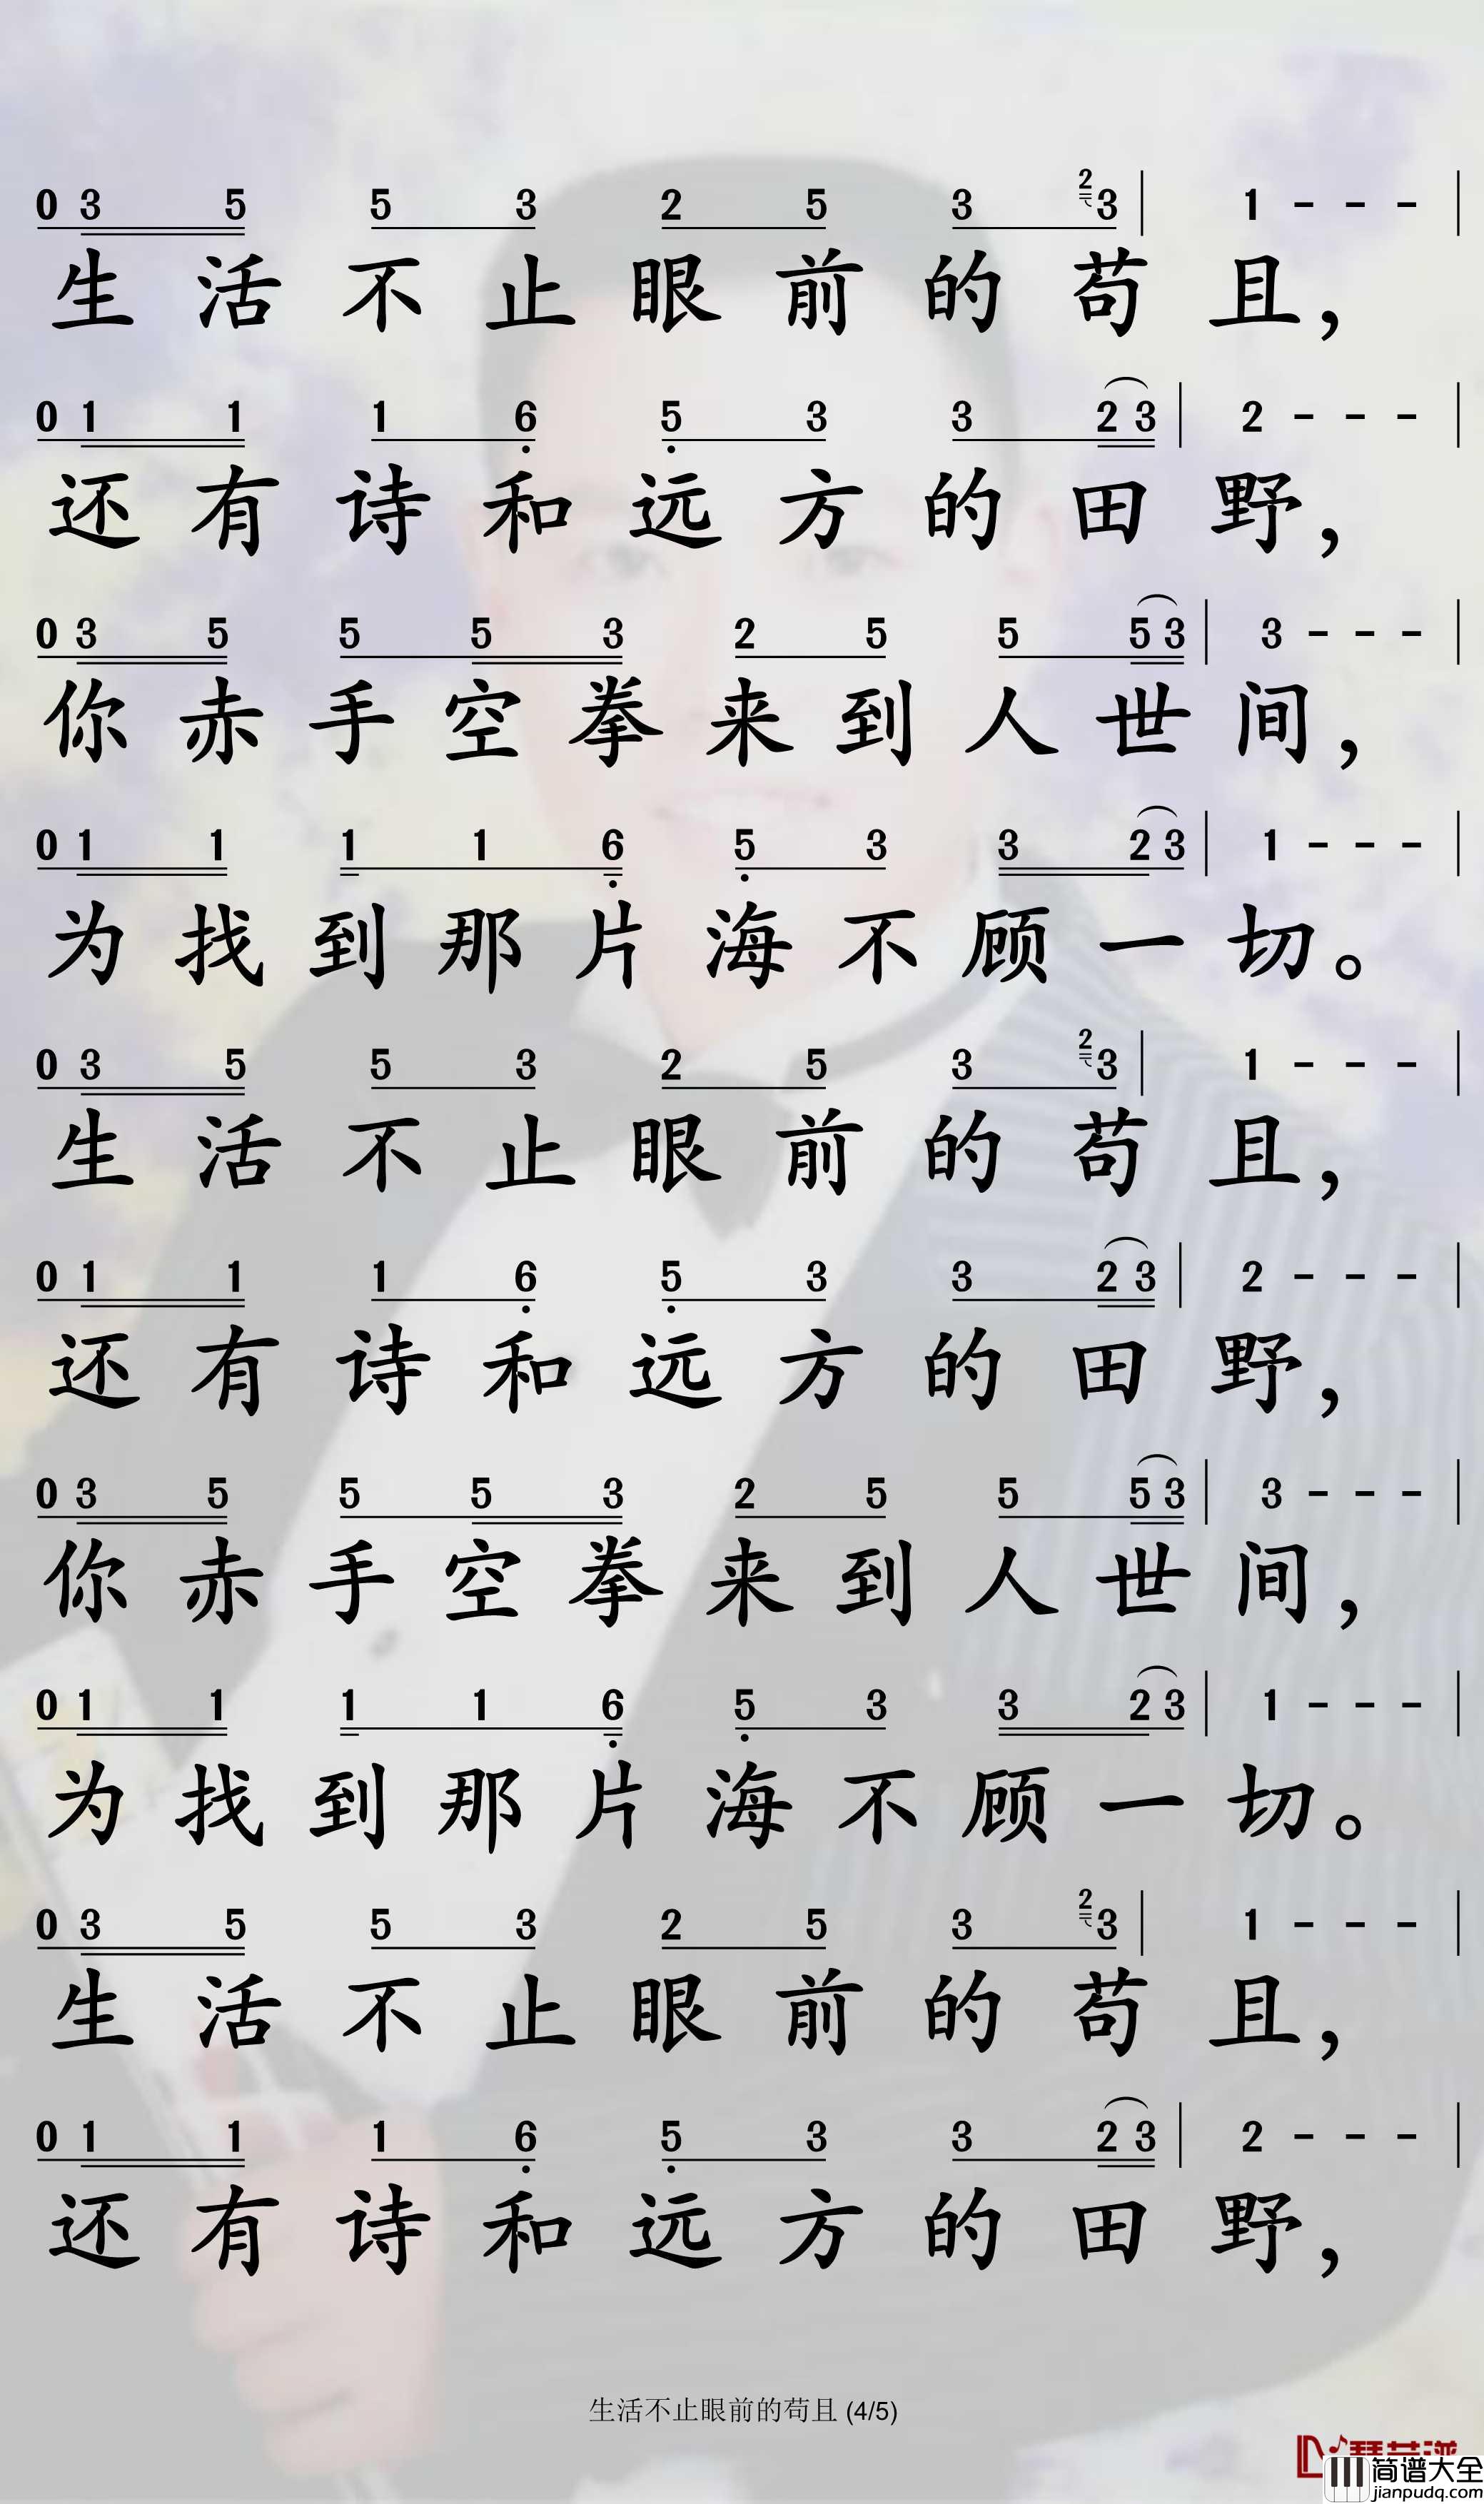 0 3 5 5 3 2 5 3 2 3 | 1 - - - |
生活不止眼前的苟且，
0 1 1 1 6 5 3 3 2 3 | 2 - - - |
还有诗和远方的田野，
0 3 5 5 5 3 2 5 5 5 3 | 3 - - - |
你赤手空拳来到人世间，
0 1 1 1 1 6 5 3 3 2 3 | 1 - - - |
为找到那片海不顾一切。
0 3 5 5 3 2 5 3 2 3 | 1 - - - |
生活不止眼前的苟且，
0 1 1 1 6 5 3 3 2 3 | 2 - - - |
还有诗和远方的田野，
0 3 5 5 5 3 2 5 5 5 3 | 3 - - - |
你赤手空拳来到人世间，
0 1 1 1 1 6 5 3 3 2 3 | 1 - - - |
为找到那片海不顾一切。
0 3 5 5 3 2 5 3 2 3 | 1 - - - |
生活不止眼前的苟且，
0 1 1 1 6 5 3 3 2 3 | 2 - - - |
还有诗和远方的田野，
生活不止眼前的苟且 (4/5)
简谱大全
jianpudq.com